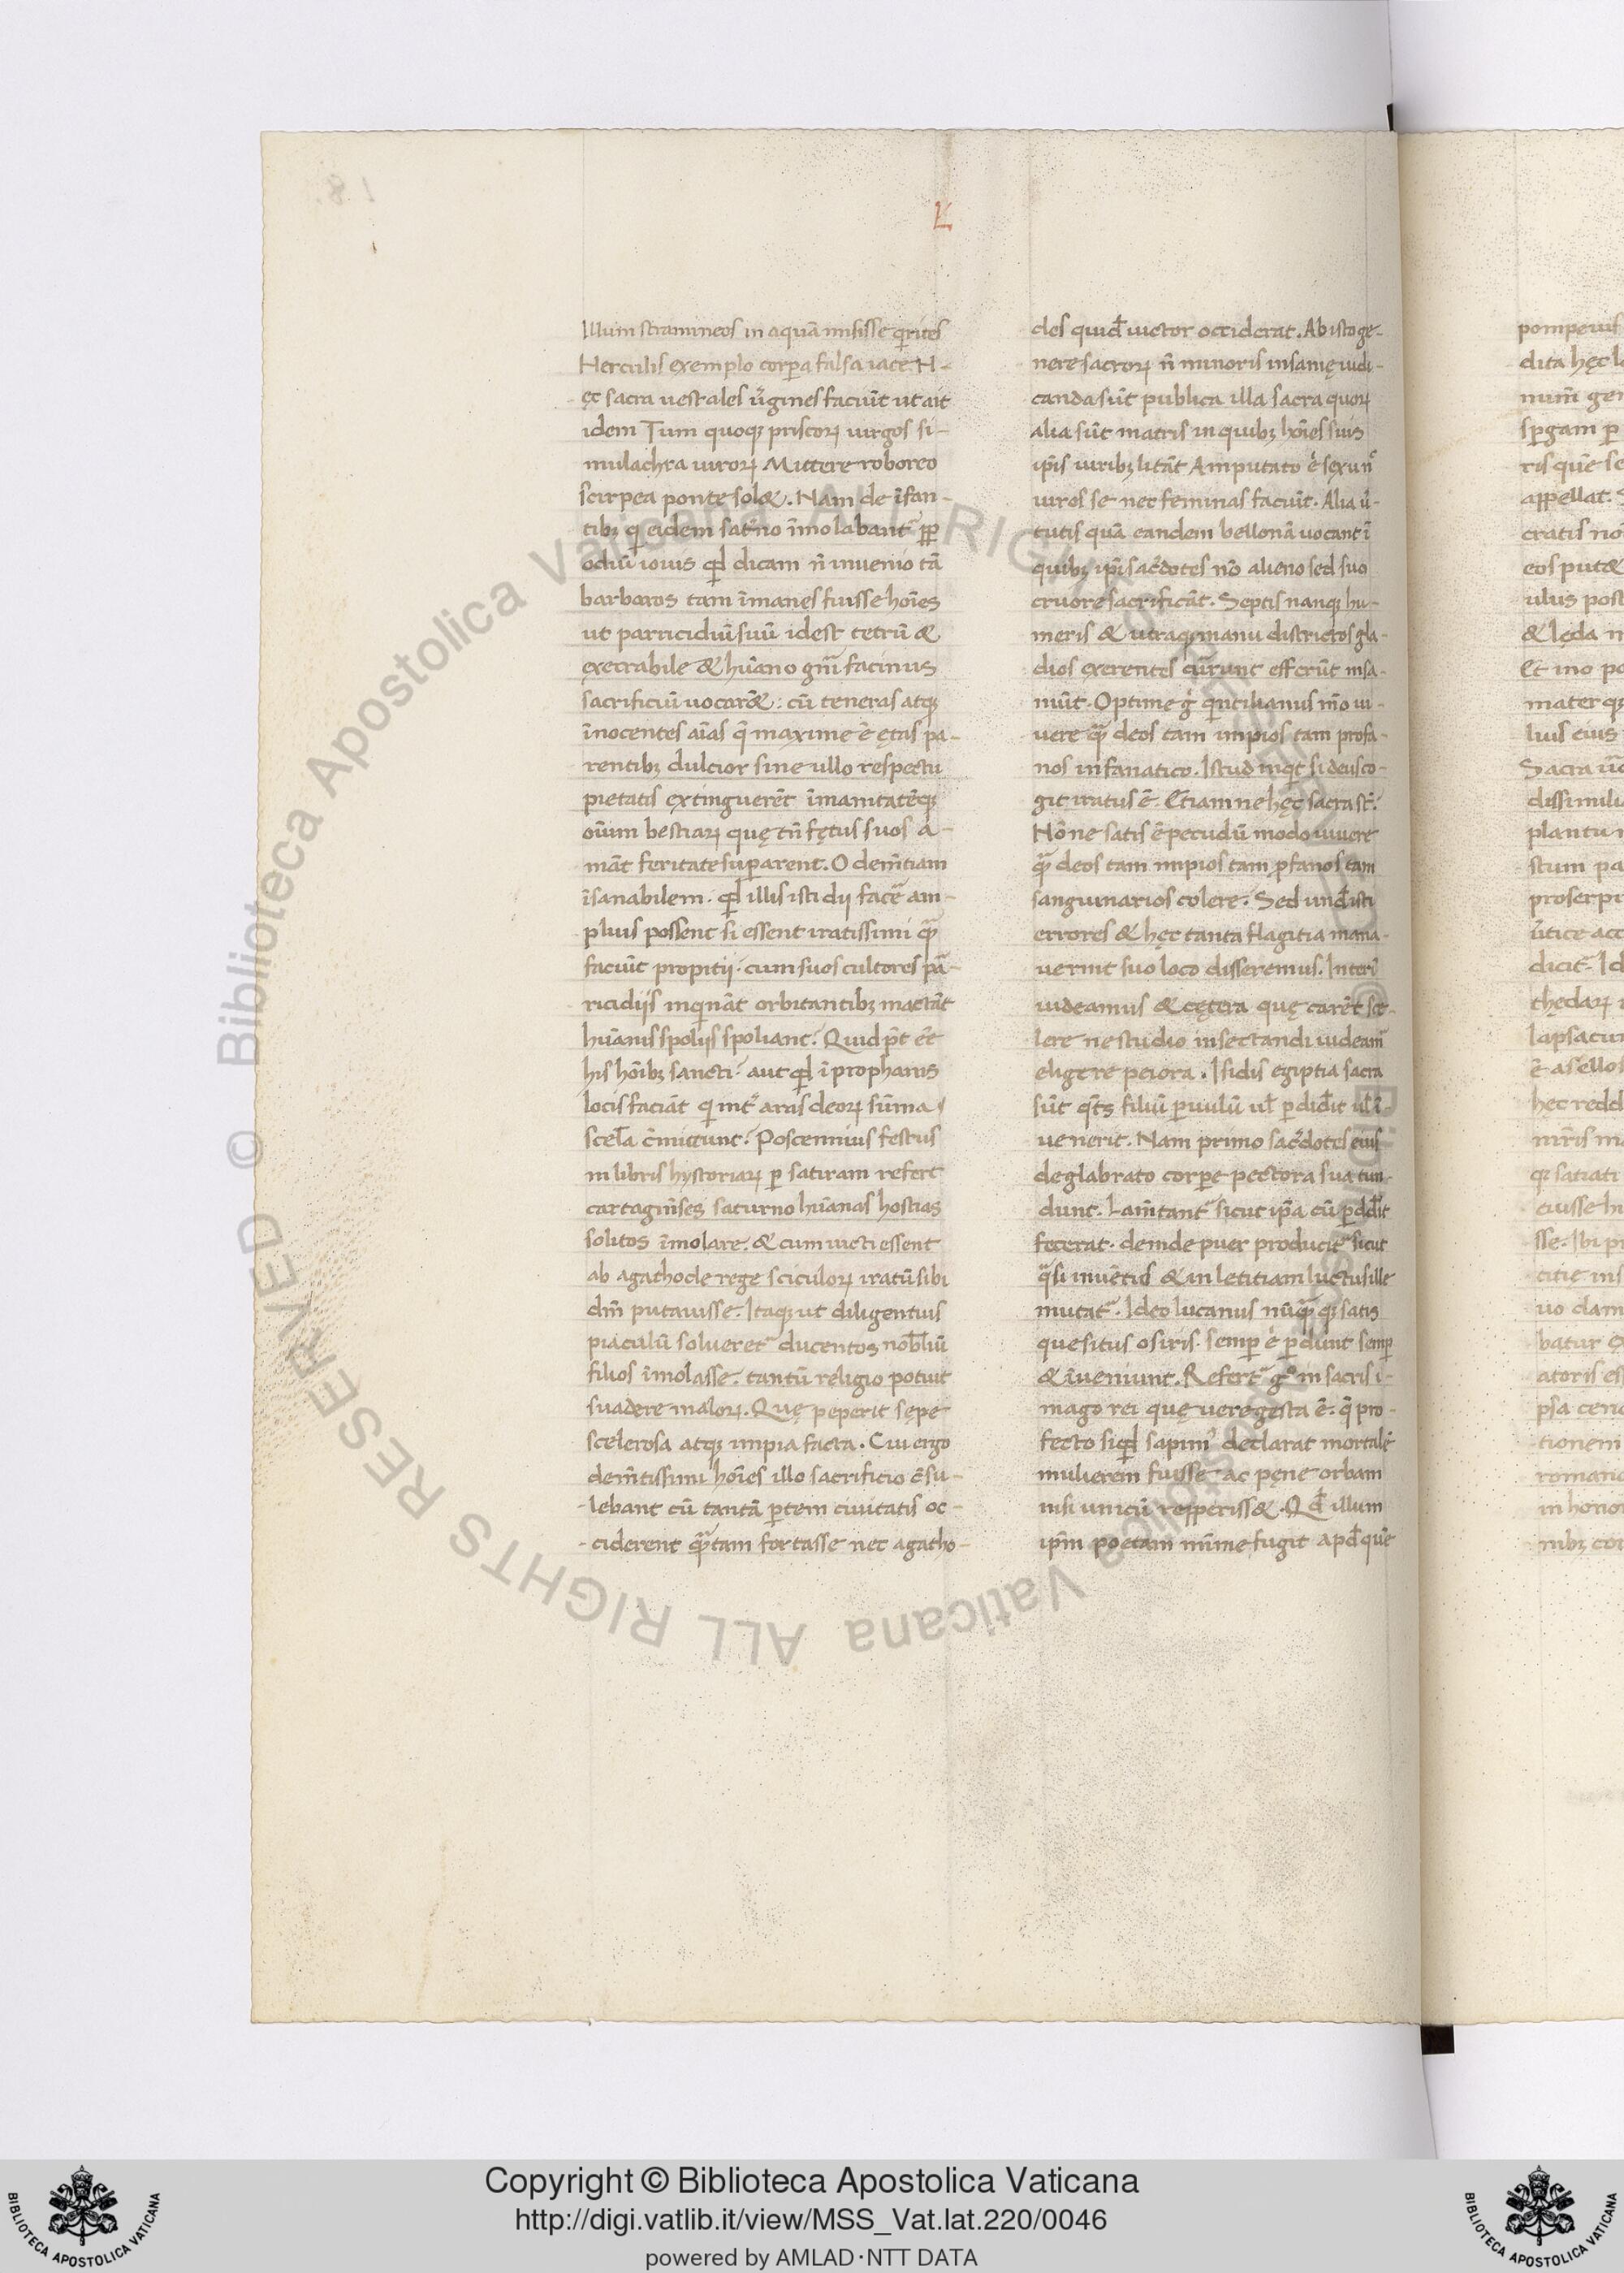 L
Illum stramineos in aquā misisse q̄rites
Herculis exemplo corp̄a falsa iace. H-
ęc sacra vestales ûgines faciūt ut ait
idem Tum quoqȝ priscoꝝ uirgos si-
mulachra uiroꝝ Mittere roboreo
scirpea ponte sol&. Nam de īfan-
tibȝ q̄ eidem sat̄no īmolabant̄ ꝑꝑ
odiū iouis qd̄ dicam n̄ inuenio tā
barbaros tam īmanes fuisse hoīes
ut parricidiū suū idest tetrū &
exęcrabile & hūano gn̄i facinus
sacrificiū uocar&: cū teneras atqȝ
īnocentes aīas q̄ maxime ē ętas pa-
rentibȝ dulcior sine ullo respectu
pietatis extinguerēt īmanitatēqȝ
oīum bestiaꝝ quę tn̄ fętus suos a-
māt feritate suꝑarent. O dem̄tiam
īsanabilem. qd̄ illis isti dij facē am-
plius possent si essent iratissimi q̄
faciūt propitij. cum suos cultores pa-
ricidijs inq̄nāt orbitantibȝ mactāt
hūanis spolijs spoliant. Quid p̄t eē
his hōibȝ sancti. aut qd̄ ī prophanis
locis faciāt q̄ int̄ aras deoꝝ sūma
scel̄a c̄mittunt. Poscennius festus
in libris hystoriaꝝ ꝑ satiram refert
cartagin̄ses saturno hūanas hostias
solitos īmolare. & cum uicti essent
ab agathocle rege sciculoꝝ iratū sibi
dm̄ putauisse. Itaqȝ ut diligentius
piaculū solueret̄ ducentos nobliū
filios īmolasse. tantū religio potuit
suadere maloꝝ. Quę peperit sępe
scelerosa atqȝ impia facta. Cui ergo
dem̄tissimi hoīes illo sacrificio c̄su-
lebant cū tantā ꝑtem ciuitatis oc-
ciderent q̄tam fortasse nec agatho-
cles quid̄ uictor occiderat. Ab isto ge-
nere sacroꝝ n̄ minoris insanię iudi-
canda sūt publica illa sacra quoꝝ
alia sūt matris in quibȝ hoīes suis
ip̄is uiribȝ litāt Amputato ē sexu n̄
uiros se nec feminas faciūt. Alia ū-
tutis quā eandem bellonā uocant ī
quibȝ ip̄i sac̄dotes nō alieno sed suo
cruore sacrificāt. Septis nanqȝ hu-
meris & utraqȝ manu districtos gla-
dios exerentes cūrunt efferūt insa-
niūt. Optime g̊ q̄ntilianus īmo ui-
uere q̄ deos tam impios tam profa-
nos in fanatico. Istud inq̄t si deus co-
git iratus ē. Etiam ne hęc sacra st̄.
Nōne satis ē pecudū modo uiuere
q̄ deos tam impios tam ꝓfanos tam
sanguinarios colere. Sed und̄ isti
errores & hęc tanta flagitia mana-
uerint suo loco disseremus. Interī
uideamus & cętera quę carēt sce-
lere ne studio insectandi uideam̄
eligere peiora. Isidis egiptia sacra
sūt q̄ts filiū paruulū ul̄ ꝑdid̄it ul̄ ī-
uenerit. Nam primo sac̄dotes eius
deglabrato corꝑe pectora sua tun-
dunt. Lam̄tant̄ sicut ip̄a cū ꝑdid̄it
fecerat. deinde puer producit̄ sicut
q̄si inuētus & in letitiam luctus ille
mutat̄. Ideo lucanus nūq̄ qȝ satis
quesitus osiris. semꝑ ē ꝑdunt semꝑ
& īueniunt. Refert̄ g̊ in sacris i-
mago rei quę uere gesta ē. q̄ pro-
fecto siqd̄ sapim̄ declarat mortalē
mulierem fuisse ac pęne orbam
nisi unicū repperiss&. Qd̄ illum
ip̄m poetam minime fugit apd̄ quē
Copyright © Biblioteca Apostolica Vaticana
http://digi.vatlib.it/view/MSS_Vat.lat.220/0046
powered by AMLAD·NTT DATA
BIBLIOTECA APOSTOLICA VATICANA
BIBLIOTECA APOSTOLICA VATICANA
© Biblioteca Apostolica Vaticana ALL RIGHTS RESERVED